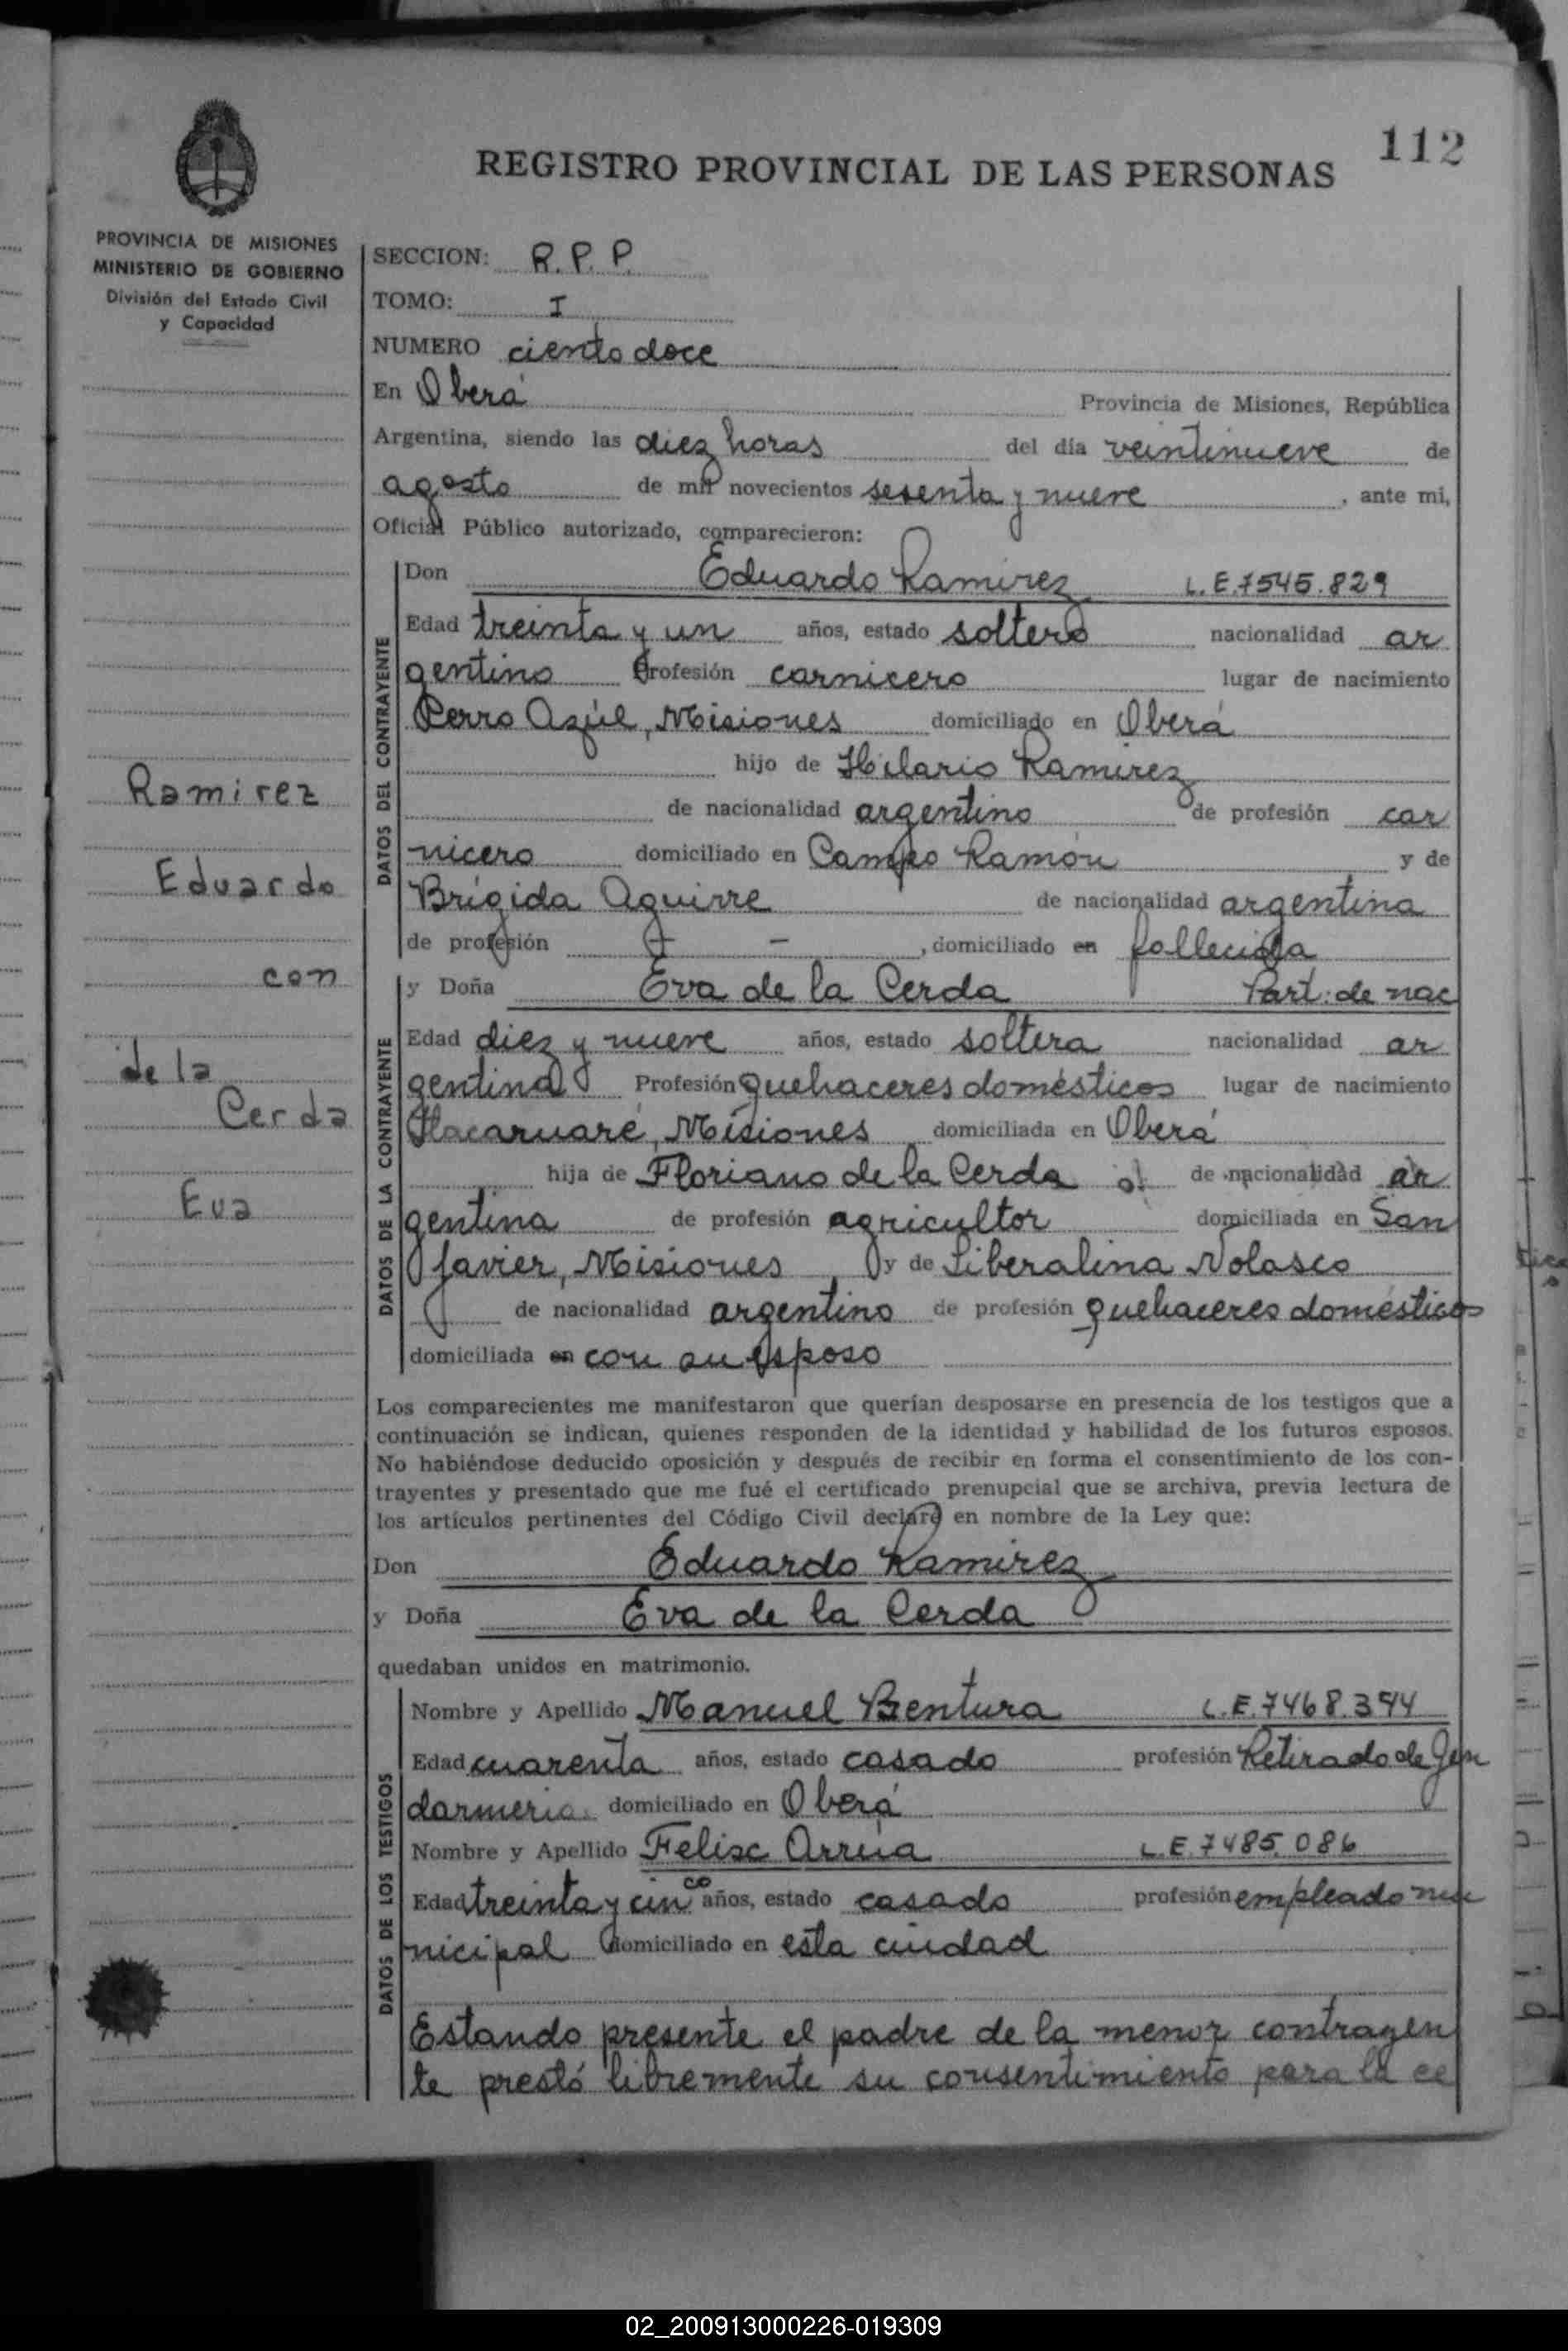 112
REGISTRO PROVINCIAL DE LAS PERSONAS
PROVINCIA DE MISIONES
MINISTERIO DE GOBIERNO
División del Estado Civil
y Capacidad
Ramirez
Eduardo
con
de la
Cerda
Eva
SECCION: R. P. P.
TOMO: I
NUMERO ciento doce
En Oberá Provincia de Misiones, República
Argentina, siendo las diez horas del día veintinueve de
agosto de mil novecientos sesenta y nueve, ante mi,
Oficial Público autorizado, comparecieron:
DATOS DEL CONTRAYENTE
Don Eduardo Ramirez L.E. 7545.829
Edad treinta y un años, estado soltero nacionalidad ar
gentino Profesión carnicero lugar de nacimiento
Cerro Azúl, Misiones domiciliado en Oberá
hijo de Hilario Ramirez
de nacionalidad argentino de profesión car
nicero domiciliado en Campo Ramón y de
Brígida Aguirre de nacionalidad argentina
de profesión - - , domiciliado en fallecida
DATOS DE LA CONTRAYENTE
y Doña Eva de la Cerda Part: de nac
Edad diez y nueve años, estado soltera nacionalidad ar
gentina Profesión quehaceres domésticos lugar de nacimiento
Itacaruaré, Misiones domiciliada en Oberá
hija de Floriano de la Cerda de nacionalidad ar
gentina de profesión agricultor domiciliada en San
Javier, Misiones y de Liberalina Nolasco
de nacionalidad argentino de profesión quehaceres domésticos
domiciliada en con su esposo
Los comparecientes me manifestaron que querían desposarse en presencia de los testigos que a
continuación se indican, quienes responden de la identidad y habilidad de los futuros esposos.
No habiéndose deducido oposición y después de recibir en forma el consentimiento de los con-
trayentes y presentado que me fué el certificado prenupcial que se archiva, previa lectura de
los artículos pertinentes del Código Civil declaré en nombre de la Ley que:
Don Eduardo Ramirez
y Doña Eva de la Cerda
quedaban unidos en matrimonio.
DATOS DE LOS TESTIGOS
Nombre y Apellido Manuel Bentura L.E. 7468.394
Edad cuarenta años, estado casado profesión Retirado de Gen
darmeria domiciliado en Oberá
Nombre y Apellido Felisc Arrúa L.E. 7485.086
Edad treinta y cinco años, estado casado profesión empleado mu
nicipal domiciliado en esta ciudad
Estando presente el padre de la menor contrayen
te prestó libremente su consentimiento para la ce
02_200913000226-019309